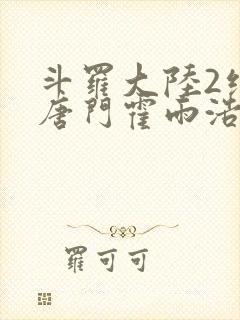 斗羅大陸2
唐門霍雨浩
羅可可